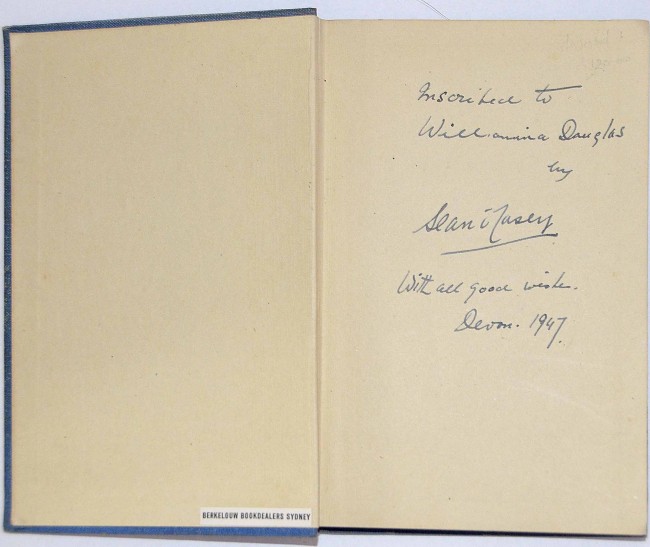 Inscribed to
Williamina Douglas
by
Sean O'Casey
With all good wishes.
Devon. 1947.
BERKELOUW BOOKDEALERS SYDNEY